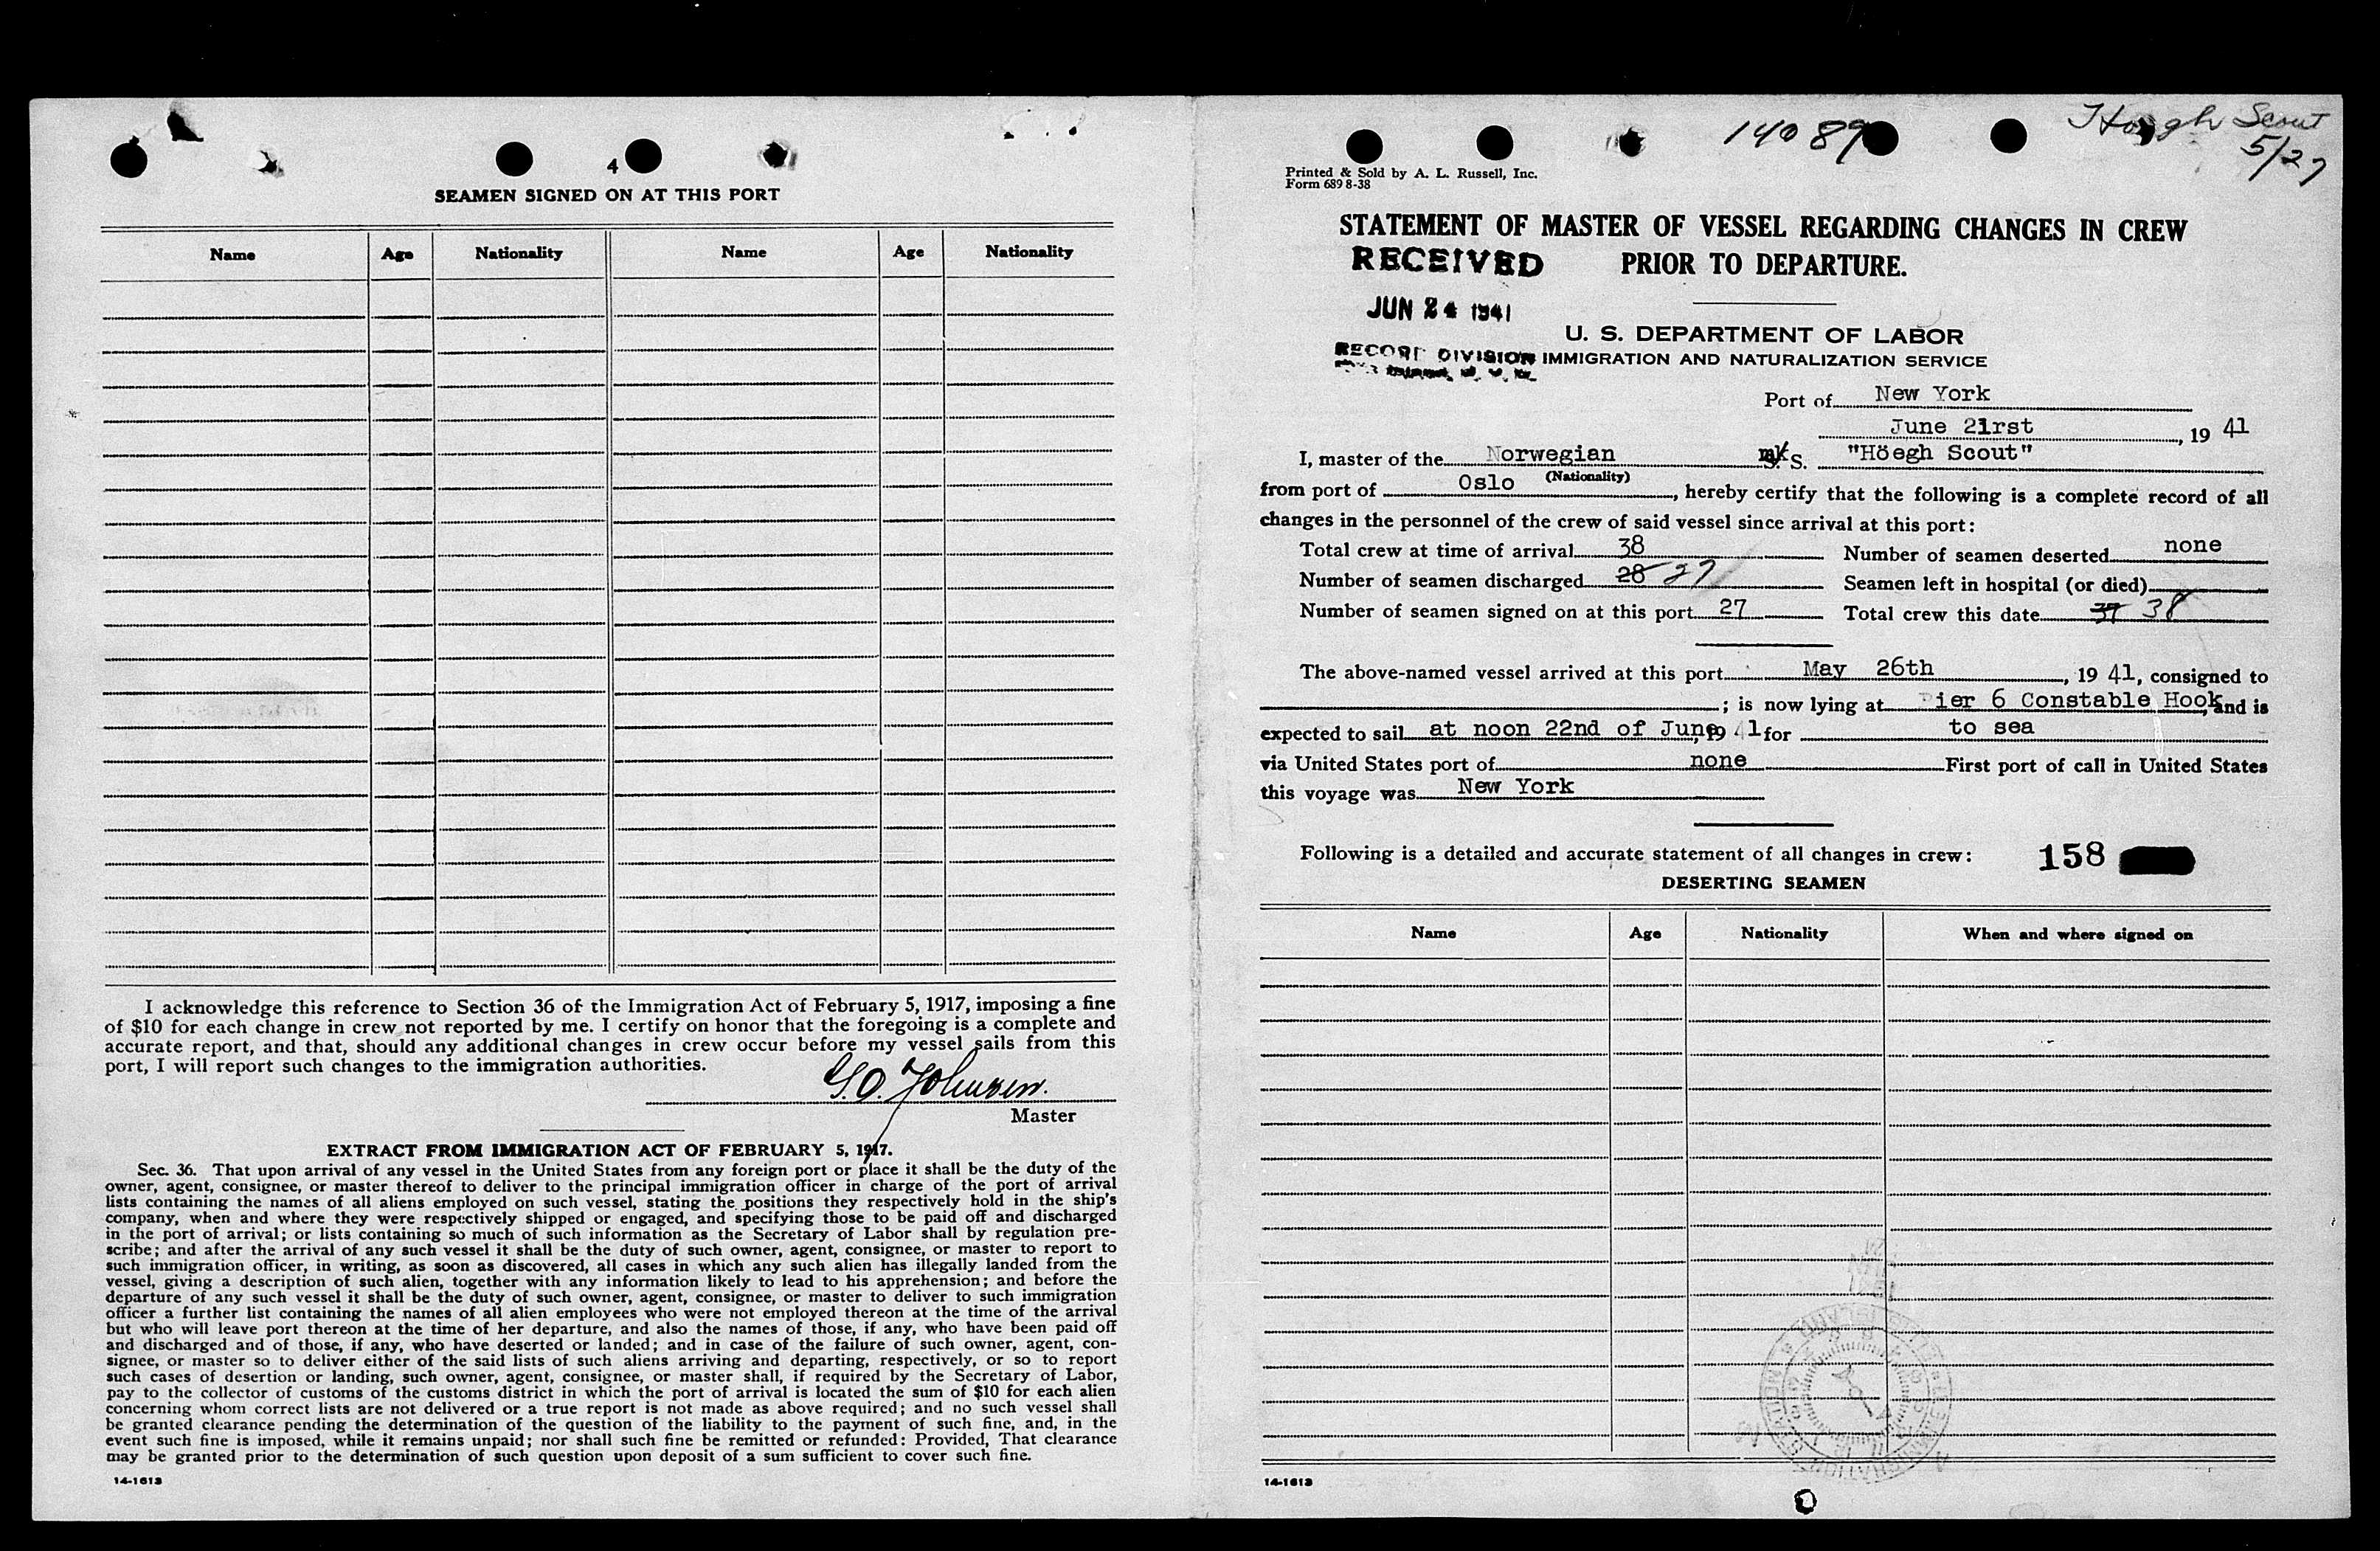 4
SEAMEN SIGNED ON AT THIS PORT
Name Age Nationality Name Age Nationality
I acknowledge this reference to Section 36 of the Immigration Act of February 5, 1917, imposing a fine
of $10 for each change in crew not reported by me. I certify on honor that the foregoing is a complete and
accurate report, and that, should any additional changes in crew occur before my vessel sails from this
port, I will report such changes to the immigration authorities.
G.O. Johnsen.
Master
EXTRACT FROM IMMIGRATION ACT OF FEBRUARY 5, 1917.
Sec. 36. That upon arrival of any vessel in the United States from any foreign port or place it shall be the duty of the
owner, agent, consignee, or master thereof to deliver to the principal immigration officer in charge of the port of arrival
lists containing the names of all aliens employed on such vessel, stating the positions they respectively hold in the ship's
company, when and where they were respectively shipped or engaged, and specifying those to be paid off and discharged
in the port of arrival; or lists containing so much of such information as the Secretary of Labor shall by regulation pre-
scribe; and after the arrival of any such vessel it shall be the duty of such owner, agent, consignee, or master to report to
such immigration officer, in writing, as soon as discovered, all cases in which any such alien has illegally landed from the
vessel, giving a description of such alien, together with any information likely to lead to his apprehension; and before the
departure of any such vessel it shall be the duty of such owner, agent, consignee, or master to deliver to such immigration
officer a further list containing the names of all alien employees who were not employed thereon at the time of the arrival
but who will leave port thereon at the time of her departure, and also the names of those, if any, who have been paid off
and discharged and of those, if any, who have deserted or landed; and in case of the failure of such owner, agent, con-
signee, or master so to deliver either of the said lists of such aliens arriving and departing, respectively, or so to report
such cases of desertion or landing, such owner, agent, consignee, or master shall, if required by the Secretary of Labor,
pay to the collector of customs of the customs district in which the port of arrival is located the sum of $10 for each alien
concerning whom correct lists are not delivered or a true report is not made as above required; and no such vessel shall
be granted clearance pending the determination of the question of the liability to the payment of such fine, and, in the
event such fine is imposed, while it remains unpaid; nor shall such fine be remitted or refunded: Provided, That clearance
may be granted prior to the determination of such question upon deposit of a sum sufficient to cover such fine.
14-1613
14089
Höegh Scout
5/27
Printed & Sold by A. L. Russell, Inc.
Form 689 8-38
STATEMENT OF MASTER OF VESSEL REGARDING CHANGES IN CREW
PRIOR TO DEPARTURE.
RECEIVED
JUN 24 1941
RECORD DIVISION
U. S. DEPARTMENT OF LABOR
IMMIGRATION AND NATURALIZATION SERVICE
Port of New York
June 21rst, 19 41
I, master of the Norwegian S. "Höegh Scout"
(Nationality)
from port of Oslo, hereby certify that the following is a complete record of all
changes in the personnel of the crew of said vessel since arrival at this port:
Total crew at time of arrival 38 Number of seamen deserted none
Number of seamen discharged 28 27 Seamen left in hospital (or died)
Number of seamen signed on at this port 27 Total crew this date 37 38
The above-named vessel arrived at this port May 26th, 19 41, consigned to
; is now lying at Pier 6 Constable Hook, and is
expected to sail at noon 22nd of June, 19 41 for to sea
via United States port of none First port of call in United States
this voyage was New York
Following is a detailed and accurate statement of all changes in crew: 158
DESERTING SEAMEN
Name Age Nationality When and where signed on
14-1613